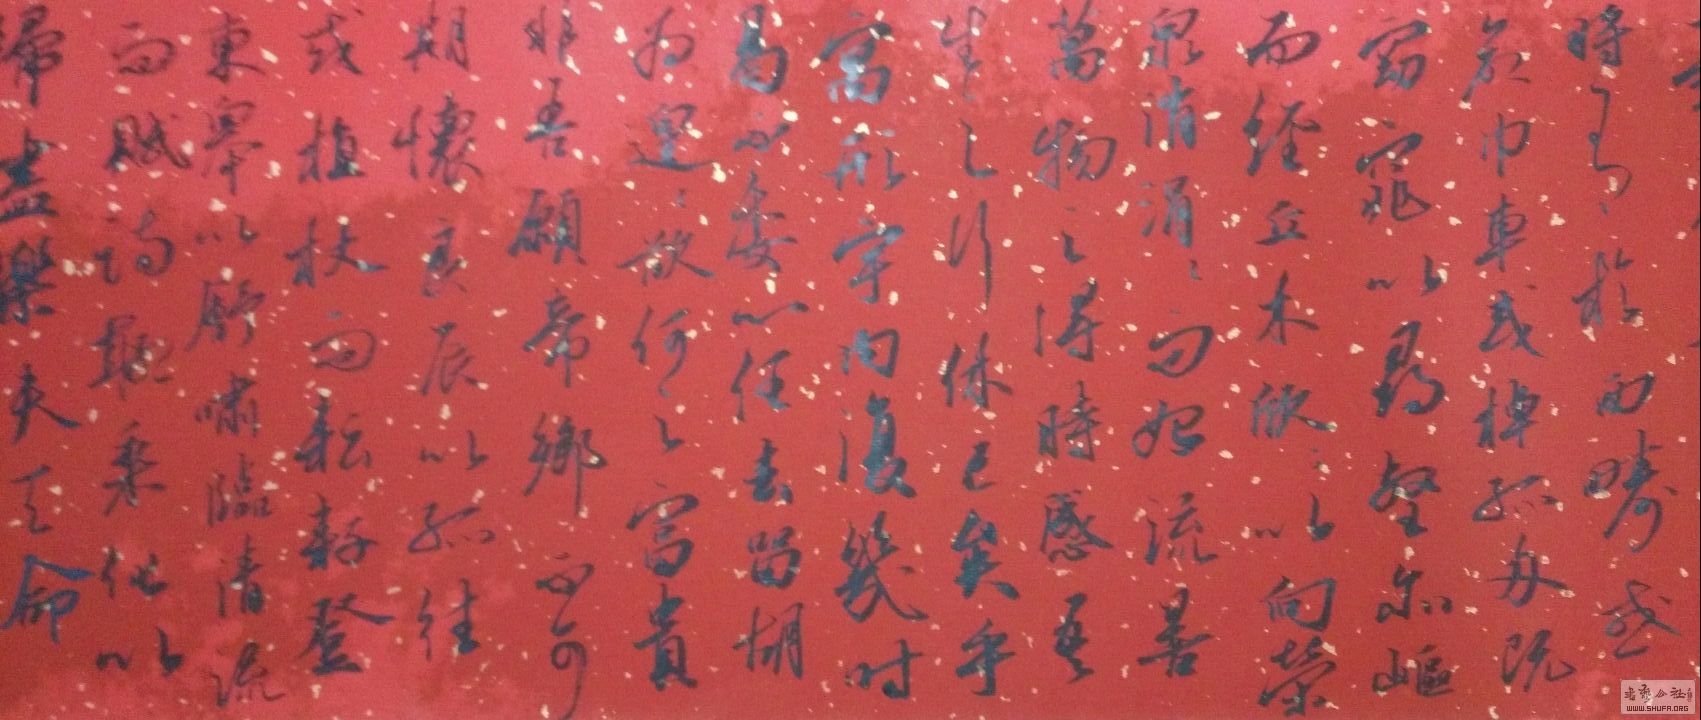 將有事於西疇或
命巾車或棹孤舟既
窈窕以尋壑亦嶇
而經丘木欣〻以向榮
泉涓涓〻而始流善
萬物之得時感吾
生之行休已矣乎
寓形宇内復幾时
曷不委心任去留胡
為遑〻欲何之富貴
非吾願帝鄉不可
期懷良辰以孤往
或植杖而耘耔登
東皋以舒嘯臨清流
而賦詩聊乘化以
歸盡樂夫天命
WWW.SHUFA.ORG